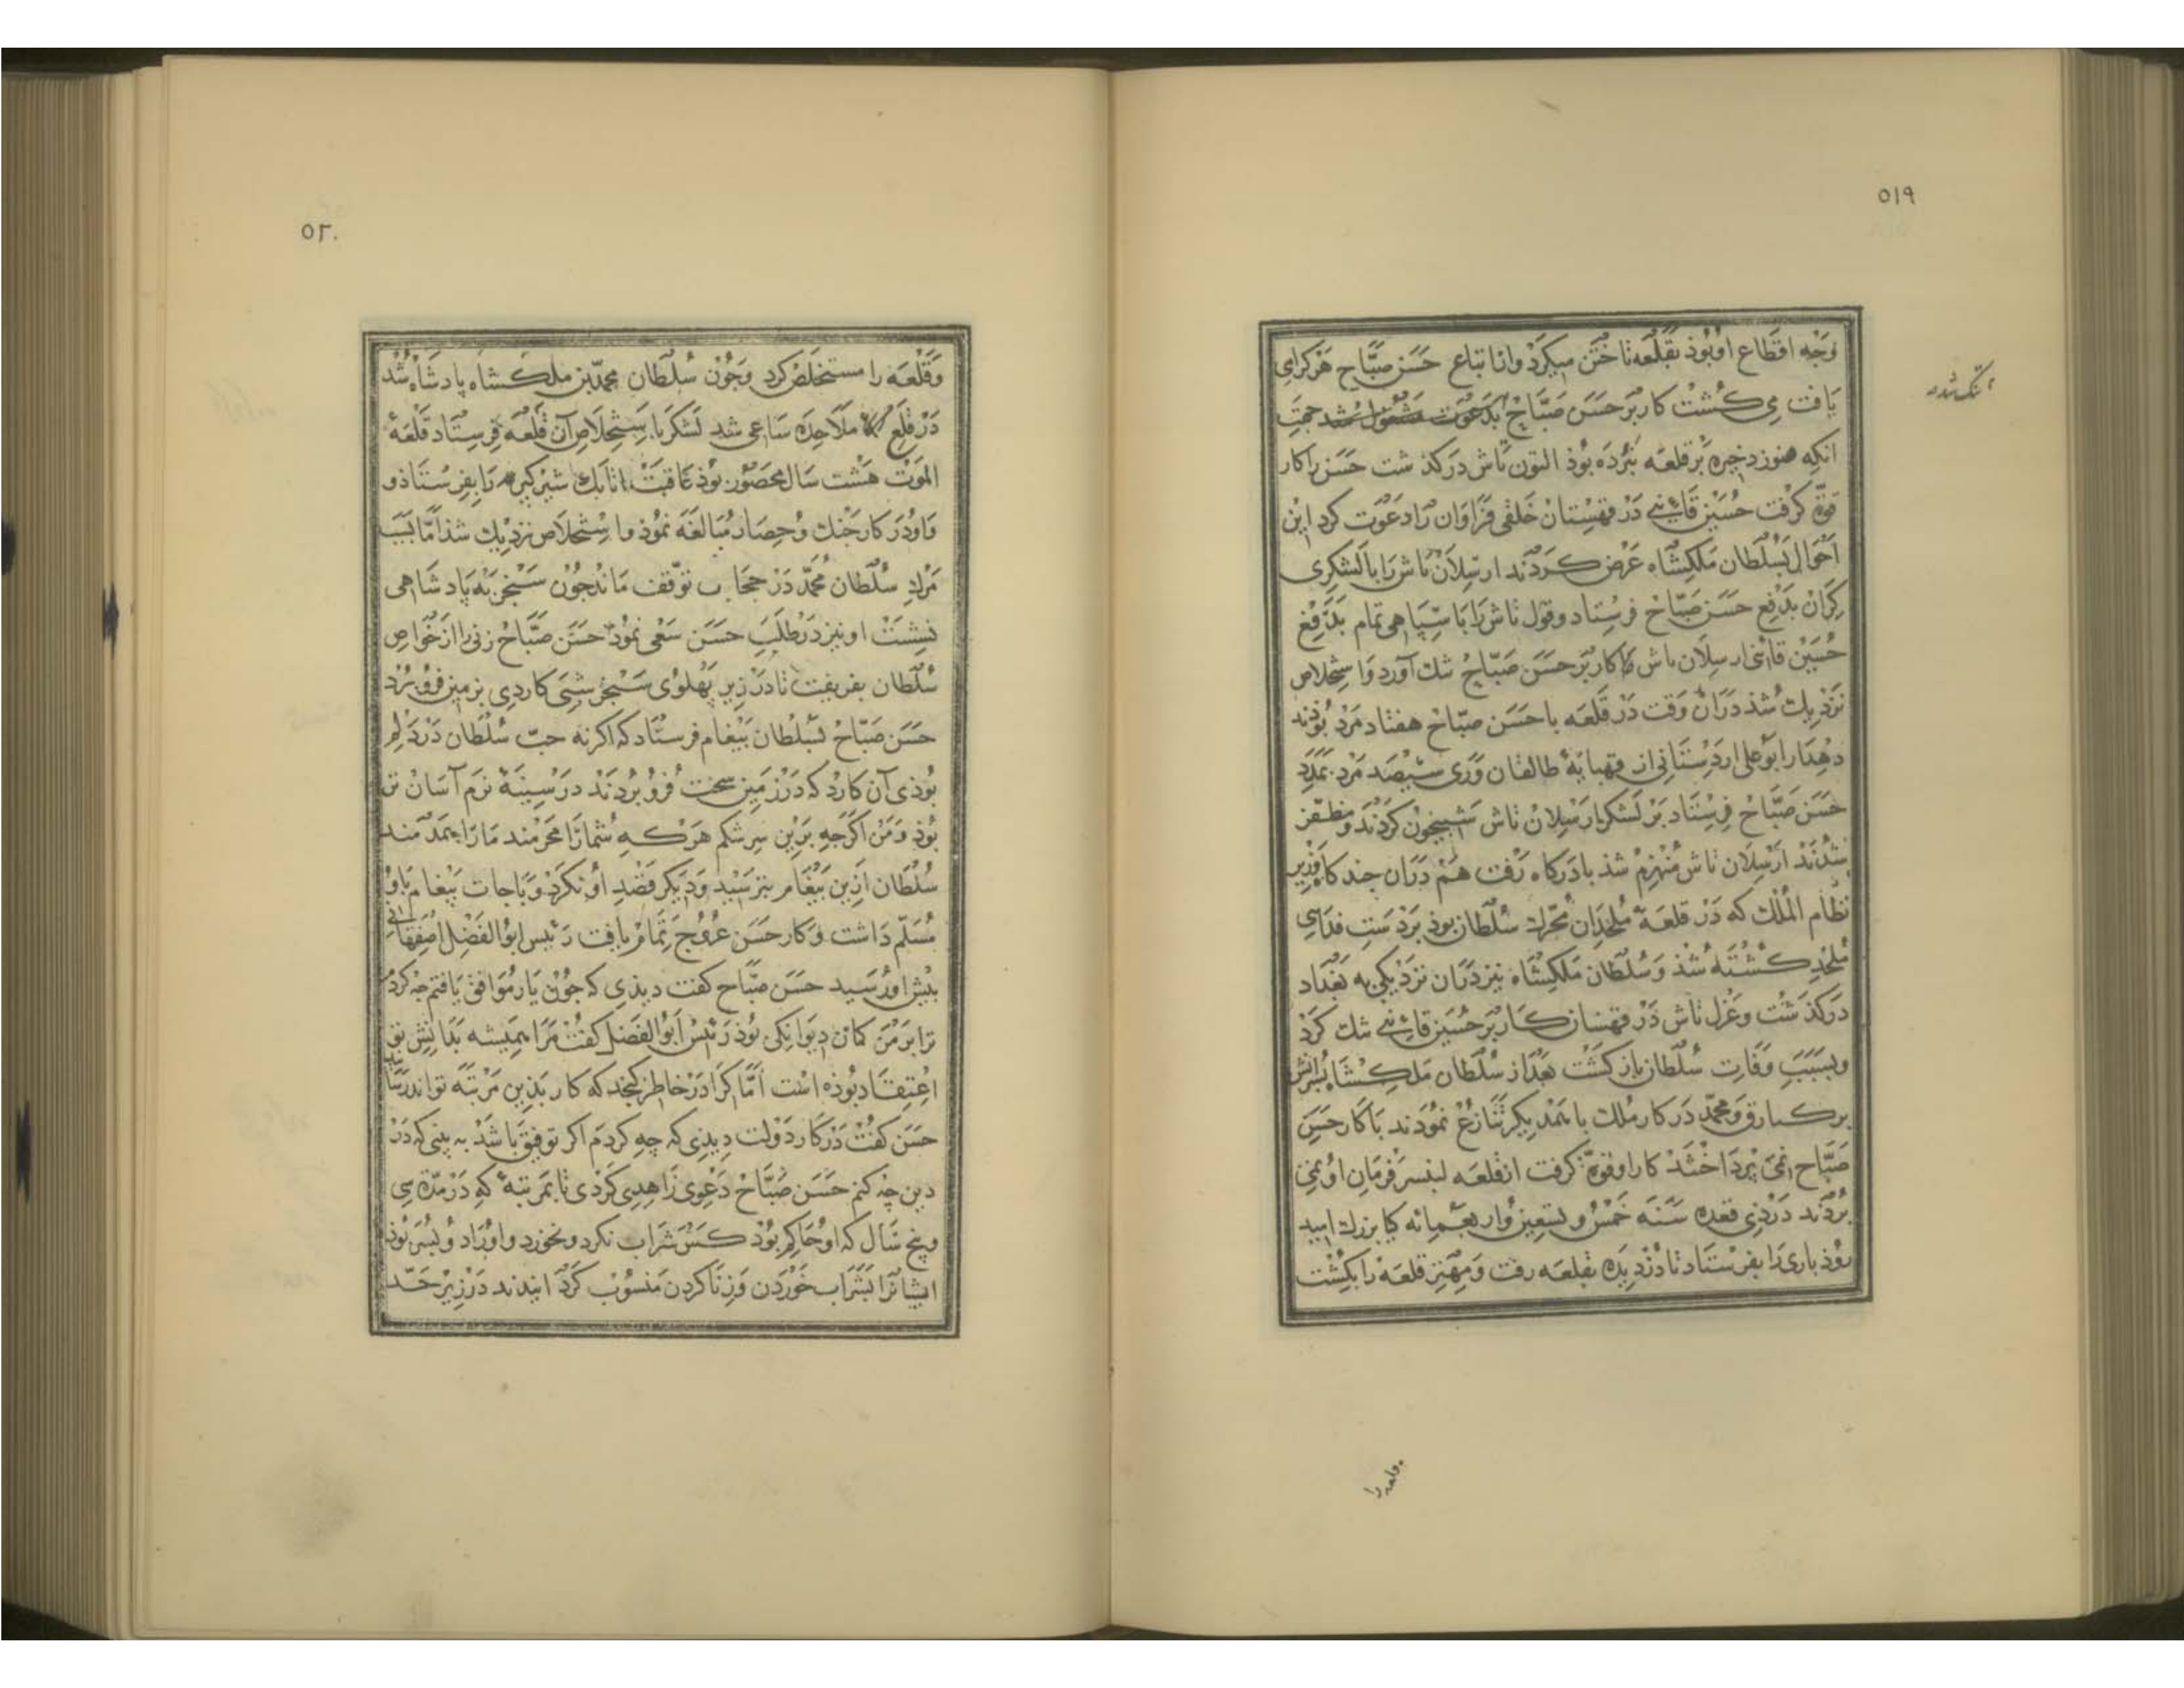 ۵۱۹
وجه اقطاع او بوذ بقلعه تاختن میکرد و از اتباع حسن صباح هرکرا می
یافت می کشت کار بر حسن صباح بدعوت مشغول شد جهت
تنک شد
انکه هنوز ذخیره بر قلعه نبرده بوذ التون تاش درکذشت حسن را کار
قوة کرفت حسین قائنی در قهستان خلقی فراوان را دعوت کرد این
احوال بسلطان ملکشاه عرض کردند ارسلان تاش را با لشکری
کران بدفع حسن صباح فرستاد و قول تاش را با سپاهی تمام بدفع
حسین قائنی ارسلان تاش کار بر حسن صباح تنك آورد و استخلاص
نزدیك شذ دران وقت در قلعه با حسن صباح هفتاد مرد بوذند
دهدار ابو علی اردستانی از طالقان و ری سیصد مرد بمدد
حسن صباح فرستاد بر لشکر ارسلان تاش شبیخون کردند و مظفر
شدند ارسلان تاش منهزم شذ با درکاه رفت هم دران چند کاه وزیر
نظام الملك که در قلعه ملحدان محرك سلطان بوذ بر دست فدایی
ملحد کشته شذ و سلطان ملکشاه نیز دران نزدیکی به بغداد
درکذشت و غزل تاش در قهستان کار بر حسین قائنی تنك کرد
و بسبب وفات سلطان باز کشت بعد از سلطان ملکشاه پسرانش
برکیارق و محمد در کار ملك با همدیکر تنازع نمودند با کار حسن
صباح نمی پرداختند کار او قوة کرفت از قلعه لنبسر فرمان او نمی
بردند در ذی قعده سنه خمس و تسعین و اربعمائه کیا بزرك امید
روذباری را بفرستاد تا دزدیده بقلعه رفت و مهتر قلعه را بکشت
قلعه را
۵۲۰
و قلعه را مستخلص کرد و چون سلطان محمد بن ملکشاه پادشاه شد
در قلع ملاحده ساعی شد لشکر باستخلاص آن قلعه فرستاد قلعه
الموت هشت سال محصور بوذ عاقبت اتابك شیرکیر را بفرستاذ و
و او در کار جنك و حصار مبالغه نموذ و استخلاص نزدیك شذ اما بسبب
مرك سلطان محمد در حجاب توقف ماند چون سنجر به پادشاهی
نشست او نیز در طلب حسن سعی نموذ حسن صباح زنی را از خواص
سلطان بفریفت تا در زیر پهلوی سنجر شبی کاردی بزمین فرو برد
حسن صباح بسلطان پیغام فرستاد که اکر نه حب سلطان در دلم
بوذی آن کارد که در زمین سخت فرو بردند در سینه نرم آسان تر
بوذ و من اکرچه برین سر شکم هرکه شما را محرمند ما را همدمند
سلطان ازین پیغام بترسید و دیکر قصد او نکرد و باجات پیغام باو
مسلم داشت و کار حسن عروج تمام یافت رئیس ابو الفضل اصفهانی
پیش او رسید حسن صباح کفت دیذی که چون یار موافق یافتم چه کردم
ترا بر من کمان دیوانکی بوذ رئیس ابو الفضل کفت مرا همیشه بدانش تو
اعتقاد بوذه است اما کرا در خاطر کنجد که کار بذین مرتبه تواند رسانید
حسن کفت در کار دولت دیذی که چه کردم اکر توفیق باشد به بینی که در
دین چه کنم حسن صباح دعوی زاهدی کردی تا بمرتبه که در مدة سی
و پنج سال که او حاکم بوذ کس شراب نکرد و نخورد و او را دو پسر بوذ
ایشانرا بشراب خوردن و زنا کردن منسوب کرد انیدند در زیر حد